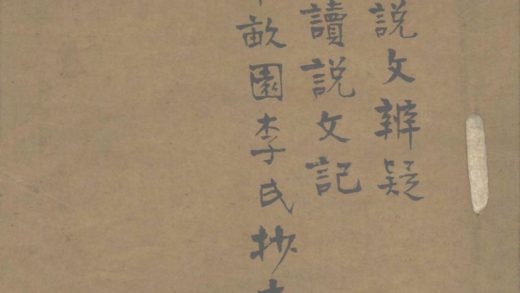 説文辨疑
讀説文記
畝園李氏抄